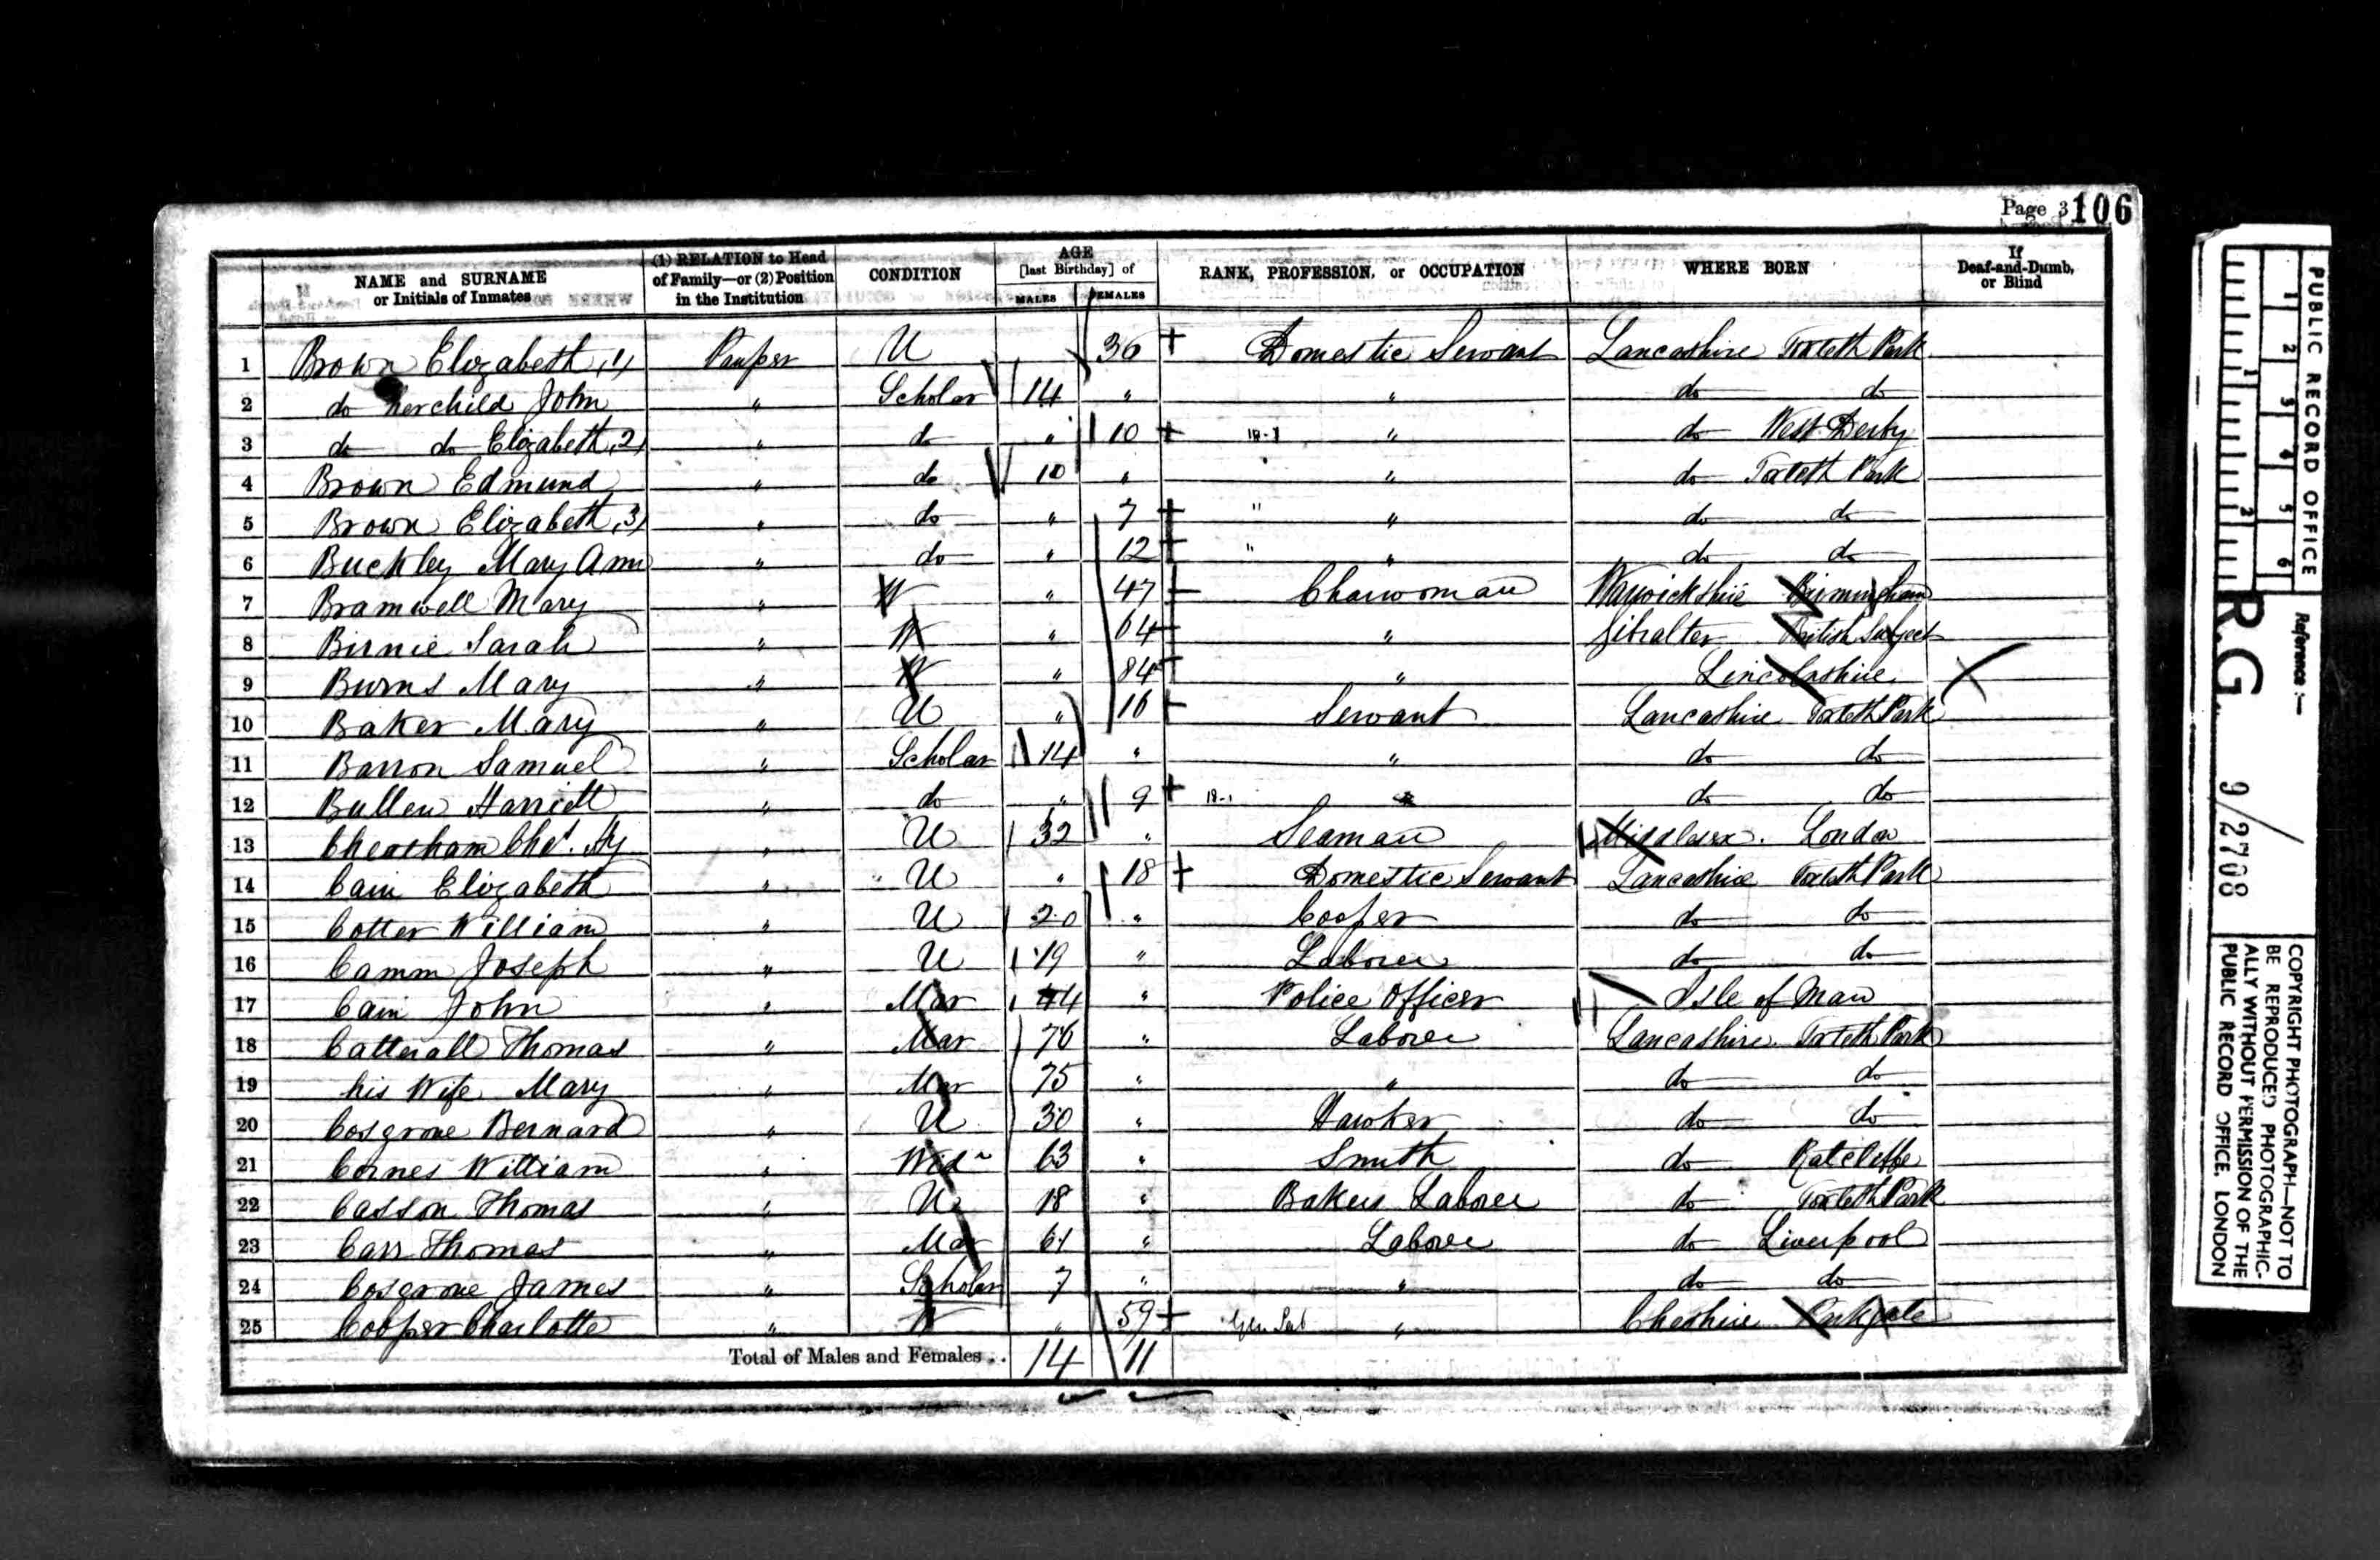 Page 3 106
NAME and SURNAME or Initials of Inmates (1) RELATION to Head of Family—or (2) Position in the Institution CONDITION AGE [last Birthday] of MALES FEMALES RANK, PROFESSION, or OCCUPATION WHERE BORN If Deaf-and-Dumb, or Blind
1 Brown Elizabeth (1) Pauper U 36 + Domestic Servant Lancashire Toxteth Park
2 do her child John " Scholar 14 " " do do
3 do do Elizabeth (2) " do " 10 + " do West Derby
4 Brown Edmund " do 10 " " do Toxteth Park
5 Brown Elizabeth (3) " do " 7 + " " do do
6 Buckley Mary Ann " do " 12 + " " do do
7 Bramwell Mary " W " 47 + Charwoman Warwickshire Birmingham
8 Birnie Sarah " W " 64 + " Gibralter British Subject
9 Burns Mary " W " 84 + " Lincolnshire
10 Baker Mary " U " 16 + Servant Lancashire Toxteth Park
11 Barron Samuel " Scholar 14 " " do do
12 Bullen Harriett " do " 9 + " do do
13 Cheasham Chs. " U 32 " Seaman London
14 Cain Elizabeth " U " 18 + Domestic Servant Lancashire Toxteth Park
15 Cotter William " U 20 " Cooper do do
16 Camm Joseph " U 19 " Laborer do do
17 Cain John " Mar 44 " Police Officer Isle of Man
18 Catterall Thomas " Mar 76 " Laborer Lancashire Toxteth Park
19 his Wife Mary " Mar 75 " " do do
20 Cosgrove Bernard " U 30 " Hawker do do
21 Cornes William " Widr 63 " Smith do Ratcliffe
22 Casson Thomas " U 18 " Bakers Laborer do Toxteth Park
23 Carr Thomas " Mar 61 " Laborer do Liverpool
24 Cosgrove James " Scholar 7 " " do do
25 Cooper Charlotte " W " 59 + " Cheshire Parkgate
Total of Males and Females . . 14 11
PUBLIC RECORD OFFICE
1 2 3 4 5 6
1 2
Reference :—
R.G. 9/2708
COPYRIGHT PHOTOGRAPH—NOT TO
BE REPRODUCED PHOTOGRAPHIC-
ALLY WITHOUT PERMISSION OF THE
PUBLIC RECORD OFFICE, LONDON